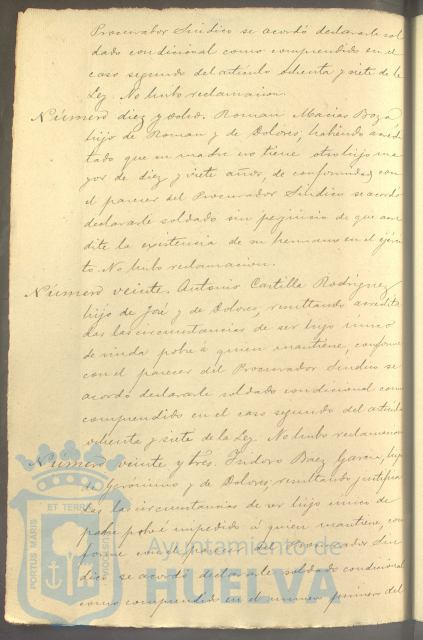 Procurador Síndico se acordó declararle sol
dado condicional como comprendido en el
caso segundo del artículo ochenta y siete de la
Ley. No hubo reclamacion.
Número diez y ocho. Roman Macias Boza,
hijo de Roman y de Dolores, habiendo acredi
tado que su madre no tiene otro hijo ma
yor de diez y siete años, de conformidad con
el parecer del Procurador Síndico se acordó
declararle soldado sin perjuicio de que acre
dite la existencia de su hermano en el ejérci
to. No hubo reclamacion.
Número veinte. Antonio Castilla Rodriguez,
hijo de José y de Dolores, resultando acredita
das las circunstancias de ser hijo único
de viuda pobre á quien mantiene, conforme
con el parecer del Procurador Síndico se
acordó declararle soldado condicional como
comprendido en el caso segundo del artículo
ochenta y siete de la Ley. No hubo reclamacion
Número veinte y tres. Isidoro Baez Garcia, hijo
de Gerónimo y de Dolores, resultando justifica
das las circunstancias de ser hijo único de
padre pobre impedido á quien mantiene, con
forme con el parecer del Procurador Sín
dico se acordó declararle soldado condicional
como comprendido en el número primero del
PORTUS MARIS
ET TERRÆ
CUSTODIA
Ayuntamiento de
HUELVA